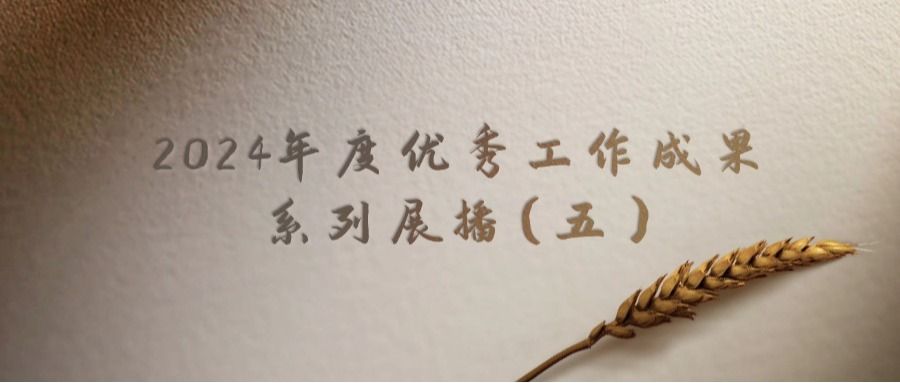 2024年度优秀工作成果
系列展播(五)